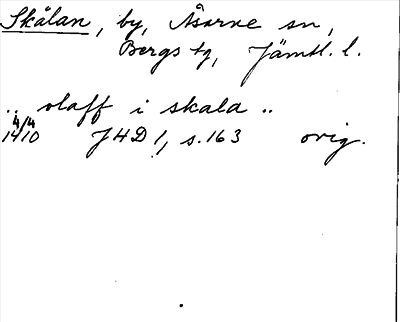 Skålan, by, Åsarne sn,
Bergs tg, Jämtl. l.
.. olaff i skala ..
4/4
1410 JHD 1, s. 163 orig.